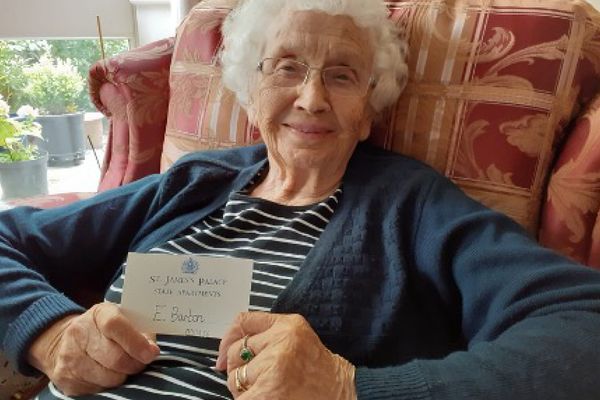 ST. JAMES'S PALACE
STATE APARTMENTS
E. Barton